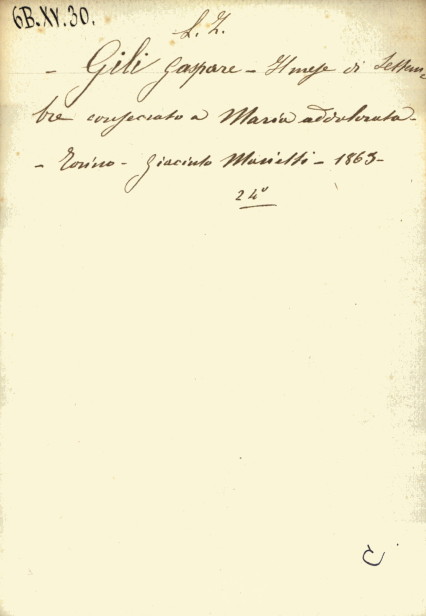 6B.XV.30.
L. Z.
- Gili Gaspare - Il mese di Settem-
bre consecrato a Maria addolorata -
- Torino - Giacinto Marietti - 1863 -
24º
C